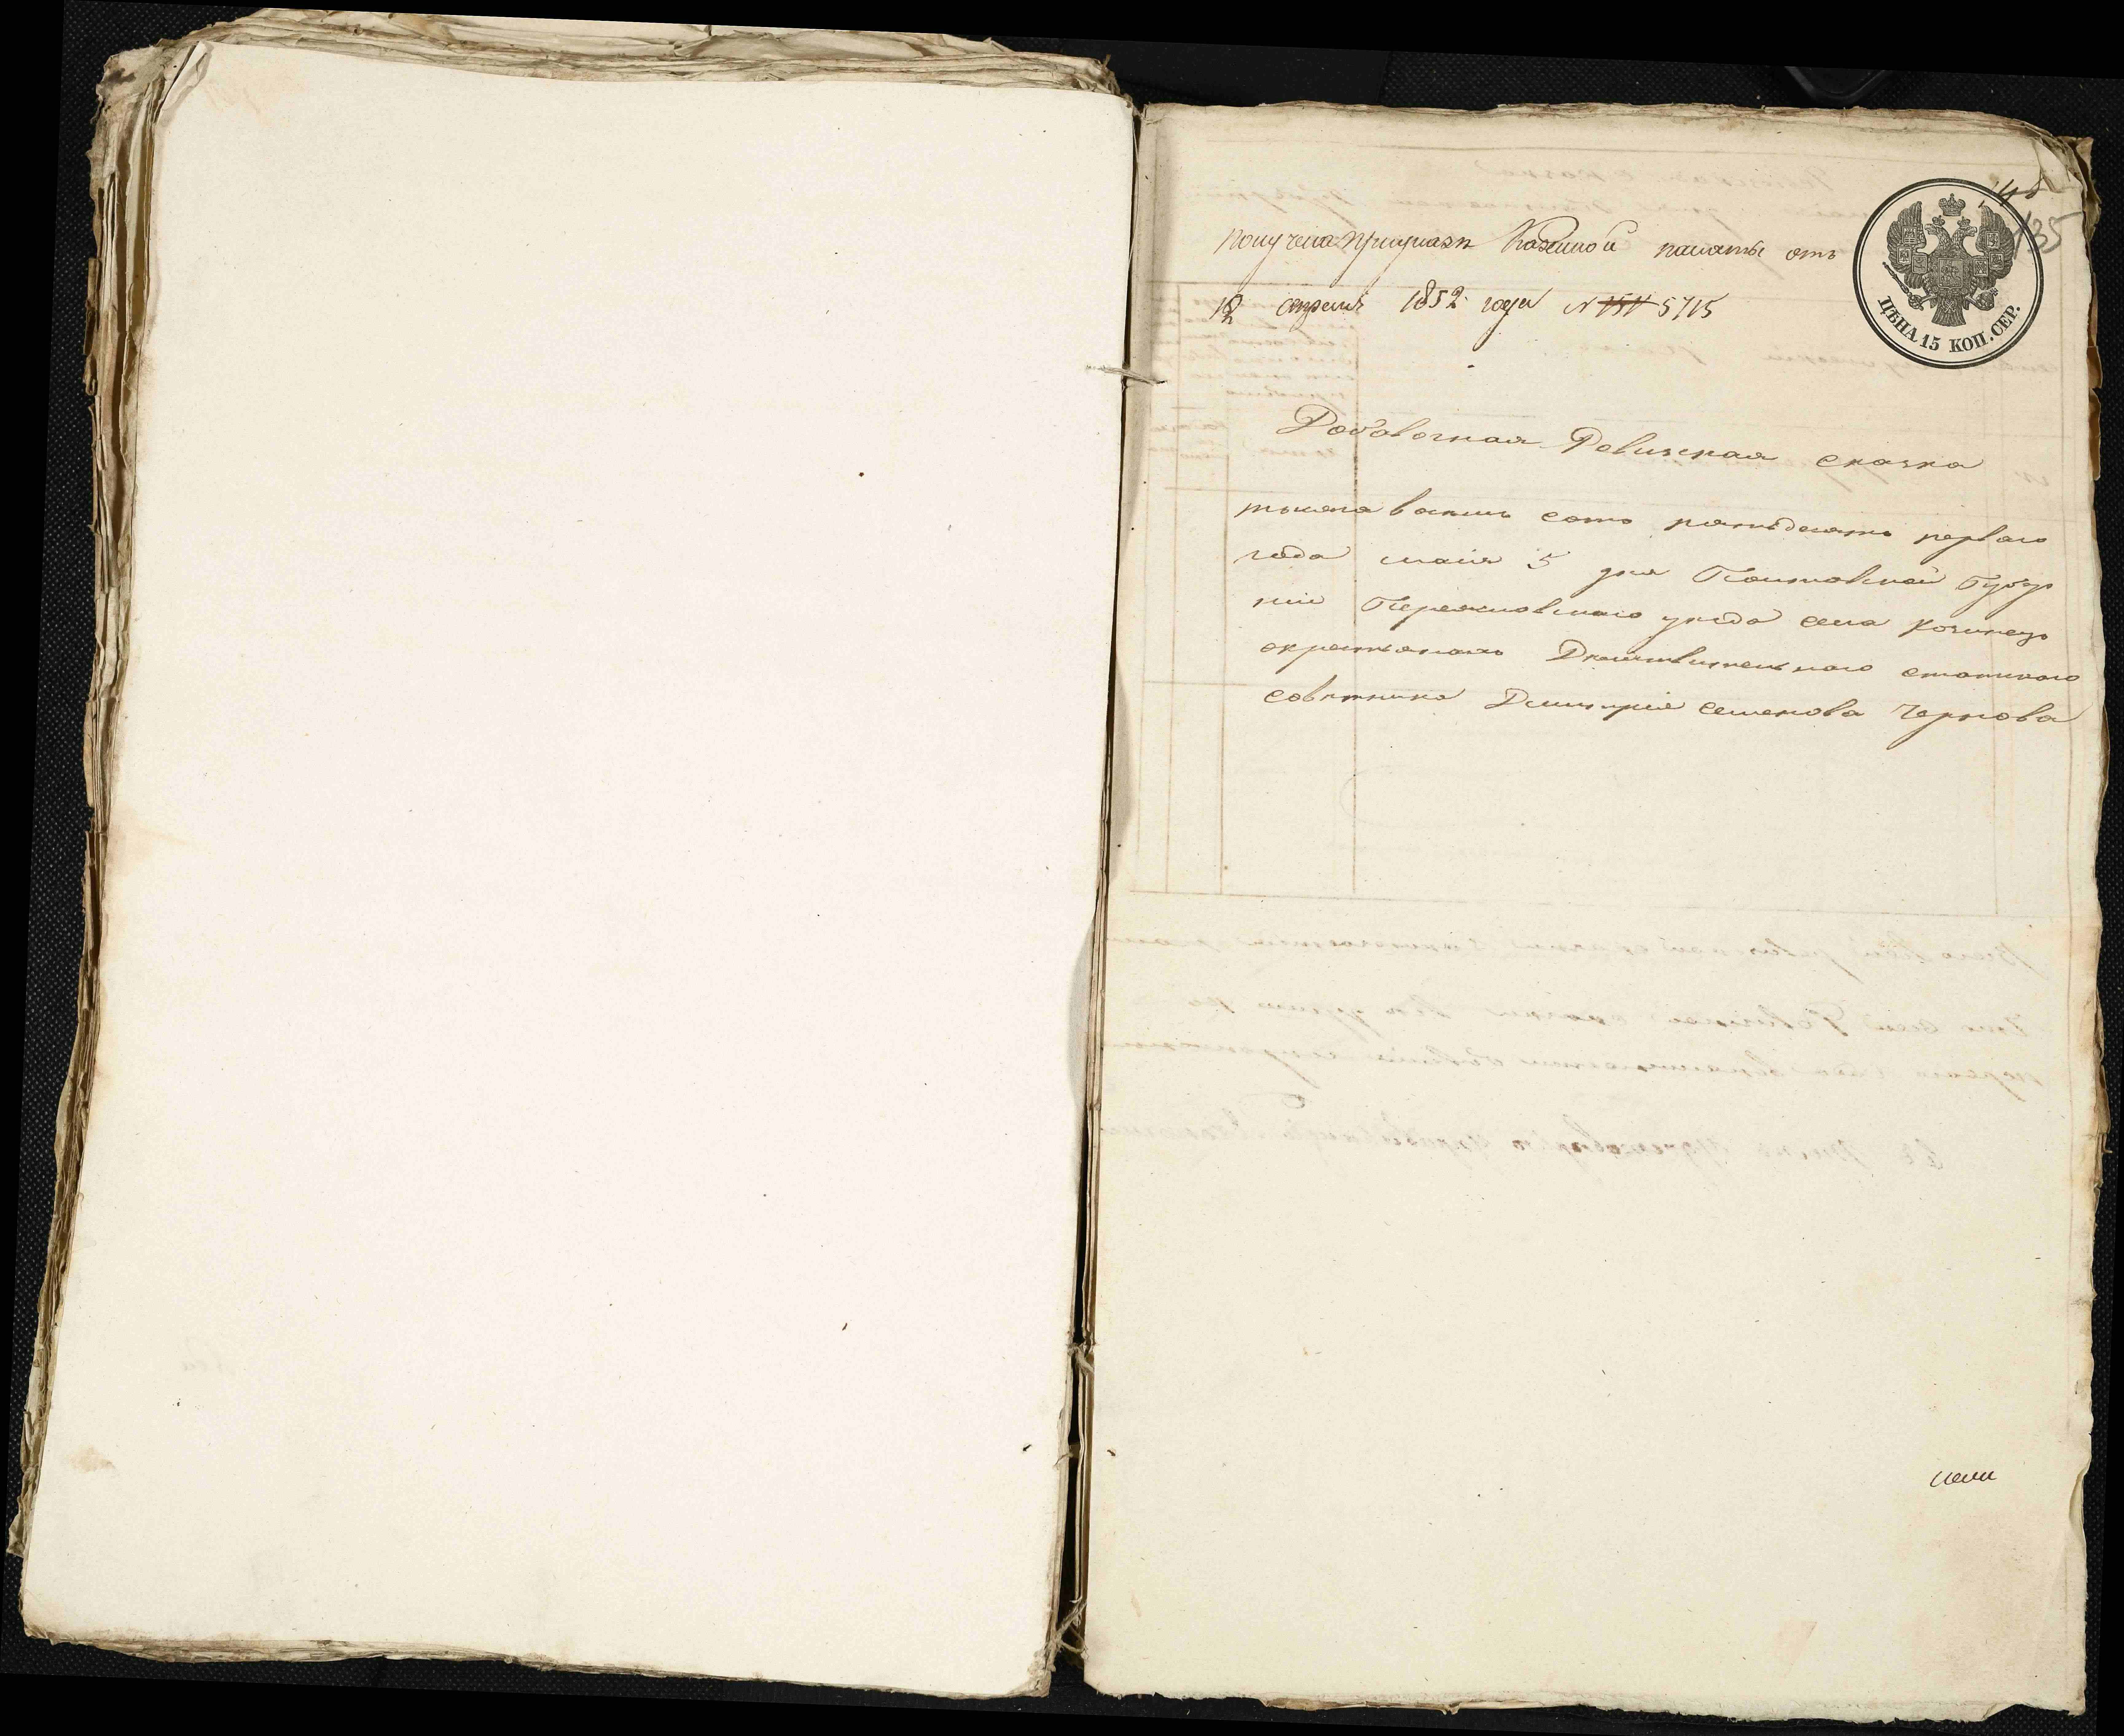 148
135
получена приуказе Казенной палаты отъ
12 апреля 1852 года N 1511 5715
ЦѢНА 15 КОП. СЕР.
Добавочная Ревизская сказка
тысяча восемь сотъ пятьдесятъ перваго
года маія 5 дня Полтавской Губер
ніи Переяславскаго уезда села
окрестьянахъ Действительнаго статскаго
советника Дмитрія Семенова Чернова